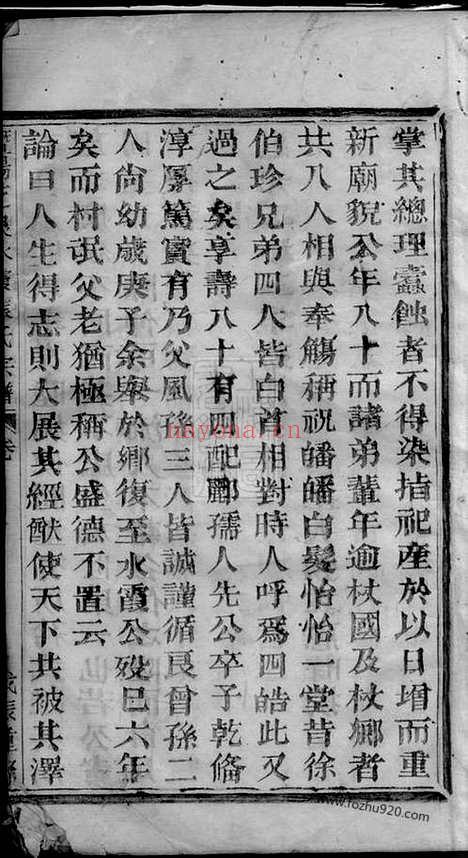 掌其總理蠹蝕者不得染指祀產於以日增而重
新廟貌公年八十而諸弟輩年逾杖國及杖鄉者
共八人相與奉觴稱祝皤皤白髮怡怡一堂昔徐
伯珍兄弟四人皆白首相對時人呼爲四皓此又
過之矣享壽八十有四配酈孺人先公卒子乾脩
淳厚篤實有乃父風孫三人皆誠謹循良曾孫二
人尚幼歲庚子余舉於鄉復至水霞公歿已六年
矣而村氓父老猶極稱公盛德不置云
論曰人生得志則大展其經猷使天下共被其澤
氏宗譜
nayona.cn
www.fozhu920.com